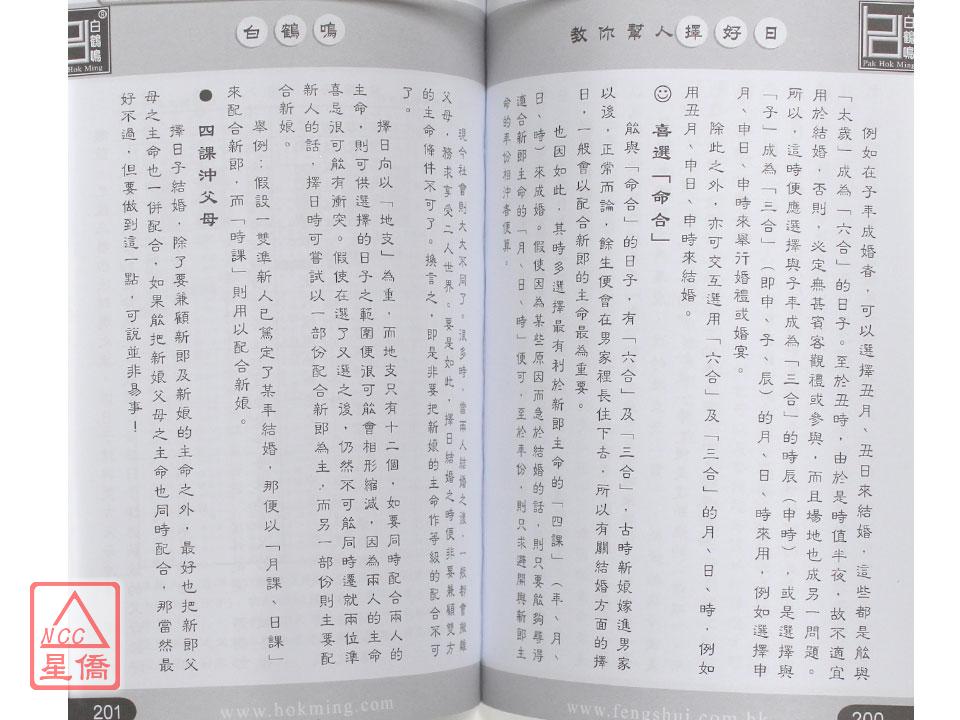 教你幫人擇好日
白鶴鳴
Pak Hok Ming
例如在子年成婚者，可以選擇丑月、丑日來結婚，這些都是能與
「太歲」成為「六合」的日子。至於丑時，由於是時值半夜，故不適宜
用於結婚，否則，必定無甚賓客觀禮或參與，而且場地也成另一問題。
所以，這時便應選擇與子年成為「三合」的時辰（申時），或是選擇與
「子」成為「三合」（即申、子、辰）的月、日、時來用，例如選擇申
月、申日、申時來舉行婚禮或婚宴。
除此之外，亦可交互選用「六合」及「三合」的月、日、時，例如
用丑月、申日、申時來結婚。
喜選「命合」
能與「命合」的日子，有「六合」及「三合」，古時新娘嫁進男家
以後，正常而論，餘生便會在男家裡長住下去，所以有關結婚方面的擇
日，一般會以配合新郎的主命最為重要。
也因如此，其時多選擇最有利於新郎主命的「四課」（年、月、
日、時）來成婚。假使因為某些原因而急於結婚的話，則只要能夠尋得
適合新郎主命的「月、日、時」便可，至於年份，則只求避開與新郎主
命的年份相沖者便算。
www.fengshui.com.hk
200
白鶴鳴
白鶴鳴
Hok Ming
現今社會則大大不同了。很多時，當兩人結婚之後，一般都會撇離
父母，務求享受二人世界。要是如此，擇日結婚之時便非要兼顧雙方
的主命條件不可了。換言之，即是非要把新娘的主命作等級的配合不可
了。
擇日向以「地支」為重，而地支只有十二個，如要同時配合兩人的
主命，則可供選擇的日子之範圍便很可能會相形縮減，因為兩人的主命
喜忌很可能有衝突。假使在選了又選之後，仍然不可能同時遷就兩位準
新人的話，擇日時可嘗試以一部份配合新郎為主，而另一部份則主要配
合新娘。
舉例：假設一雙準新人已篤定了某年結婚，那便以「月課、日課」
來配合新郎，而「時課」則用以配合新娘。
● 四課沖父母
擇日子結婚，除了要兼顧新郎及新娘的主命之外，最好也把新郎父
母之主命也一併配合，如果能把新娘父母之主命也同時配合，那當然最
好不過，但要做到這一點，可說並非易事！
www.hokming.com
201
NCC
星僑